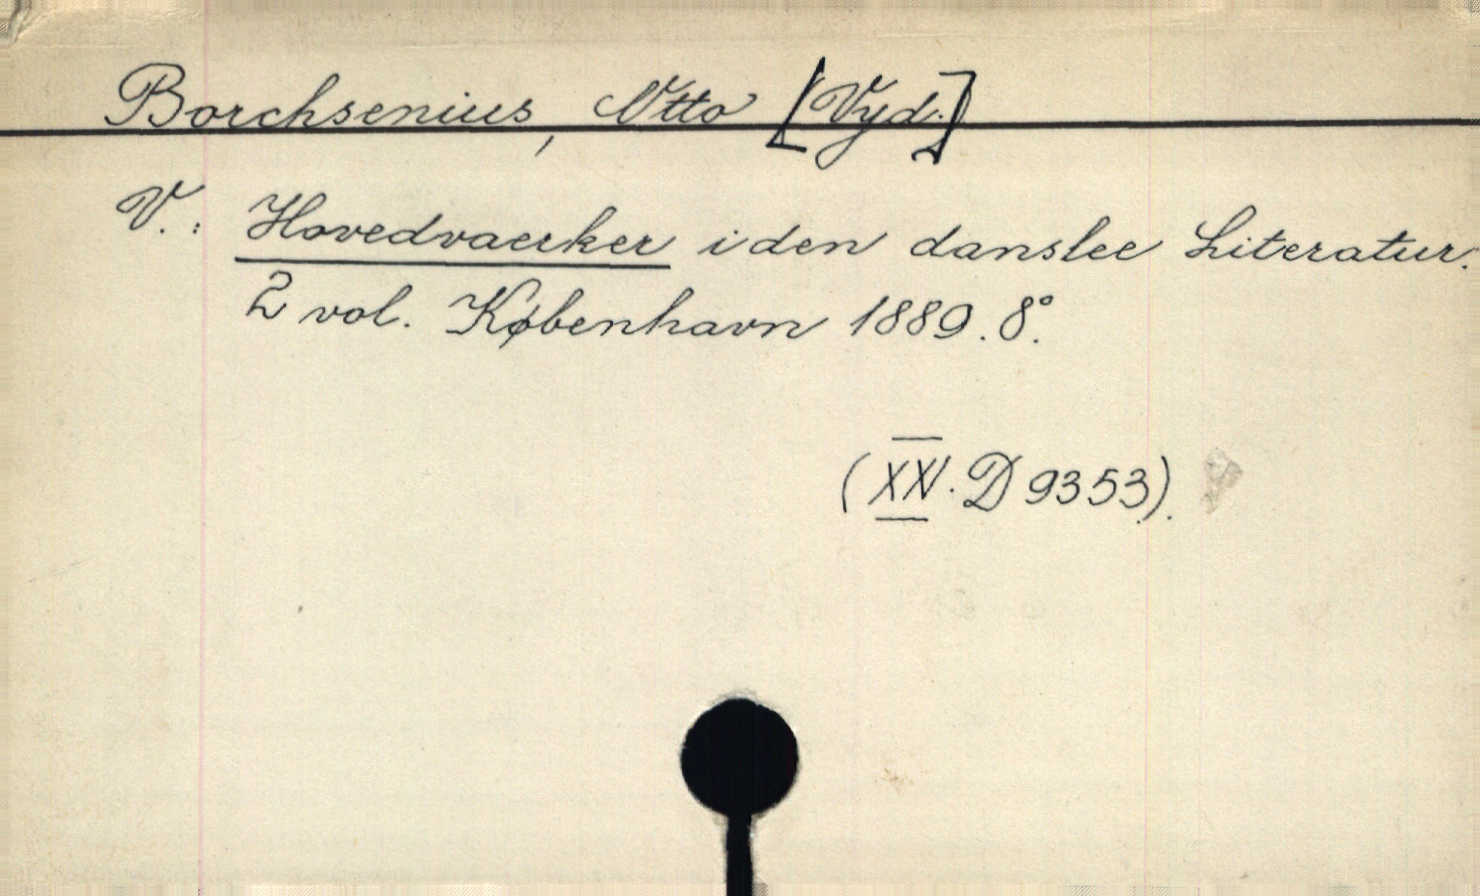 Borchsenius, Otto [Vyd.]
V.: Hovedvaerker i den danslee Literatur.
2 vol. København 1889. 8°.
(XV. D 9353).